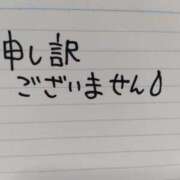 申し訳
ございません